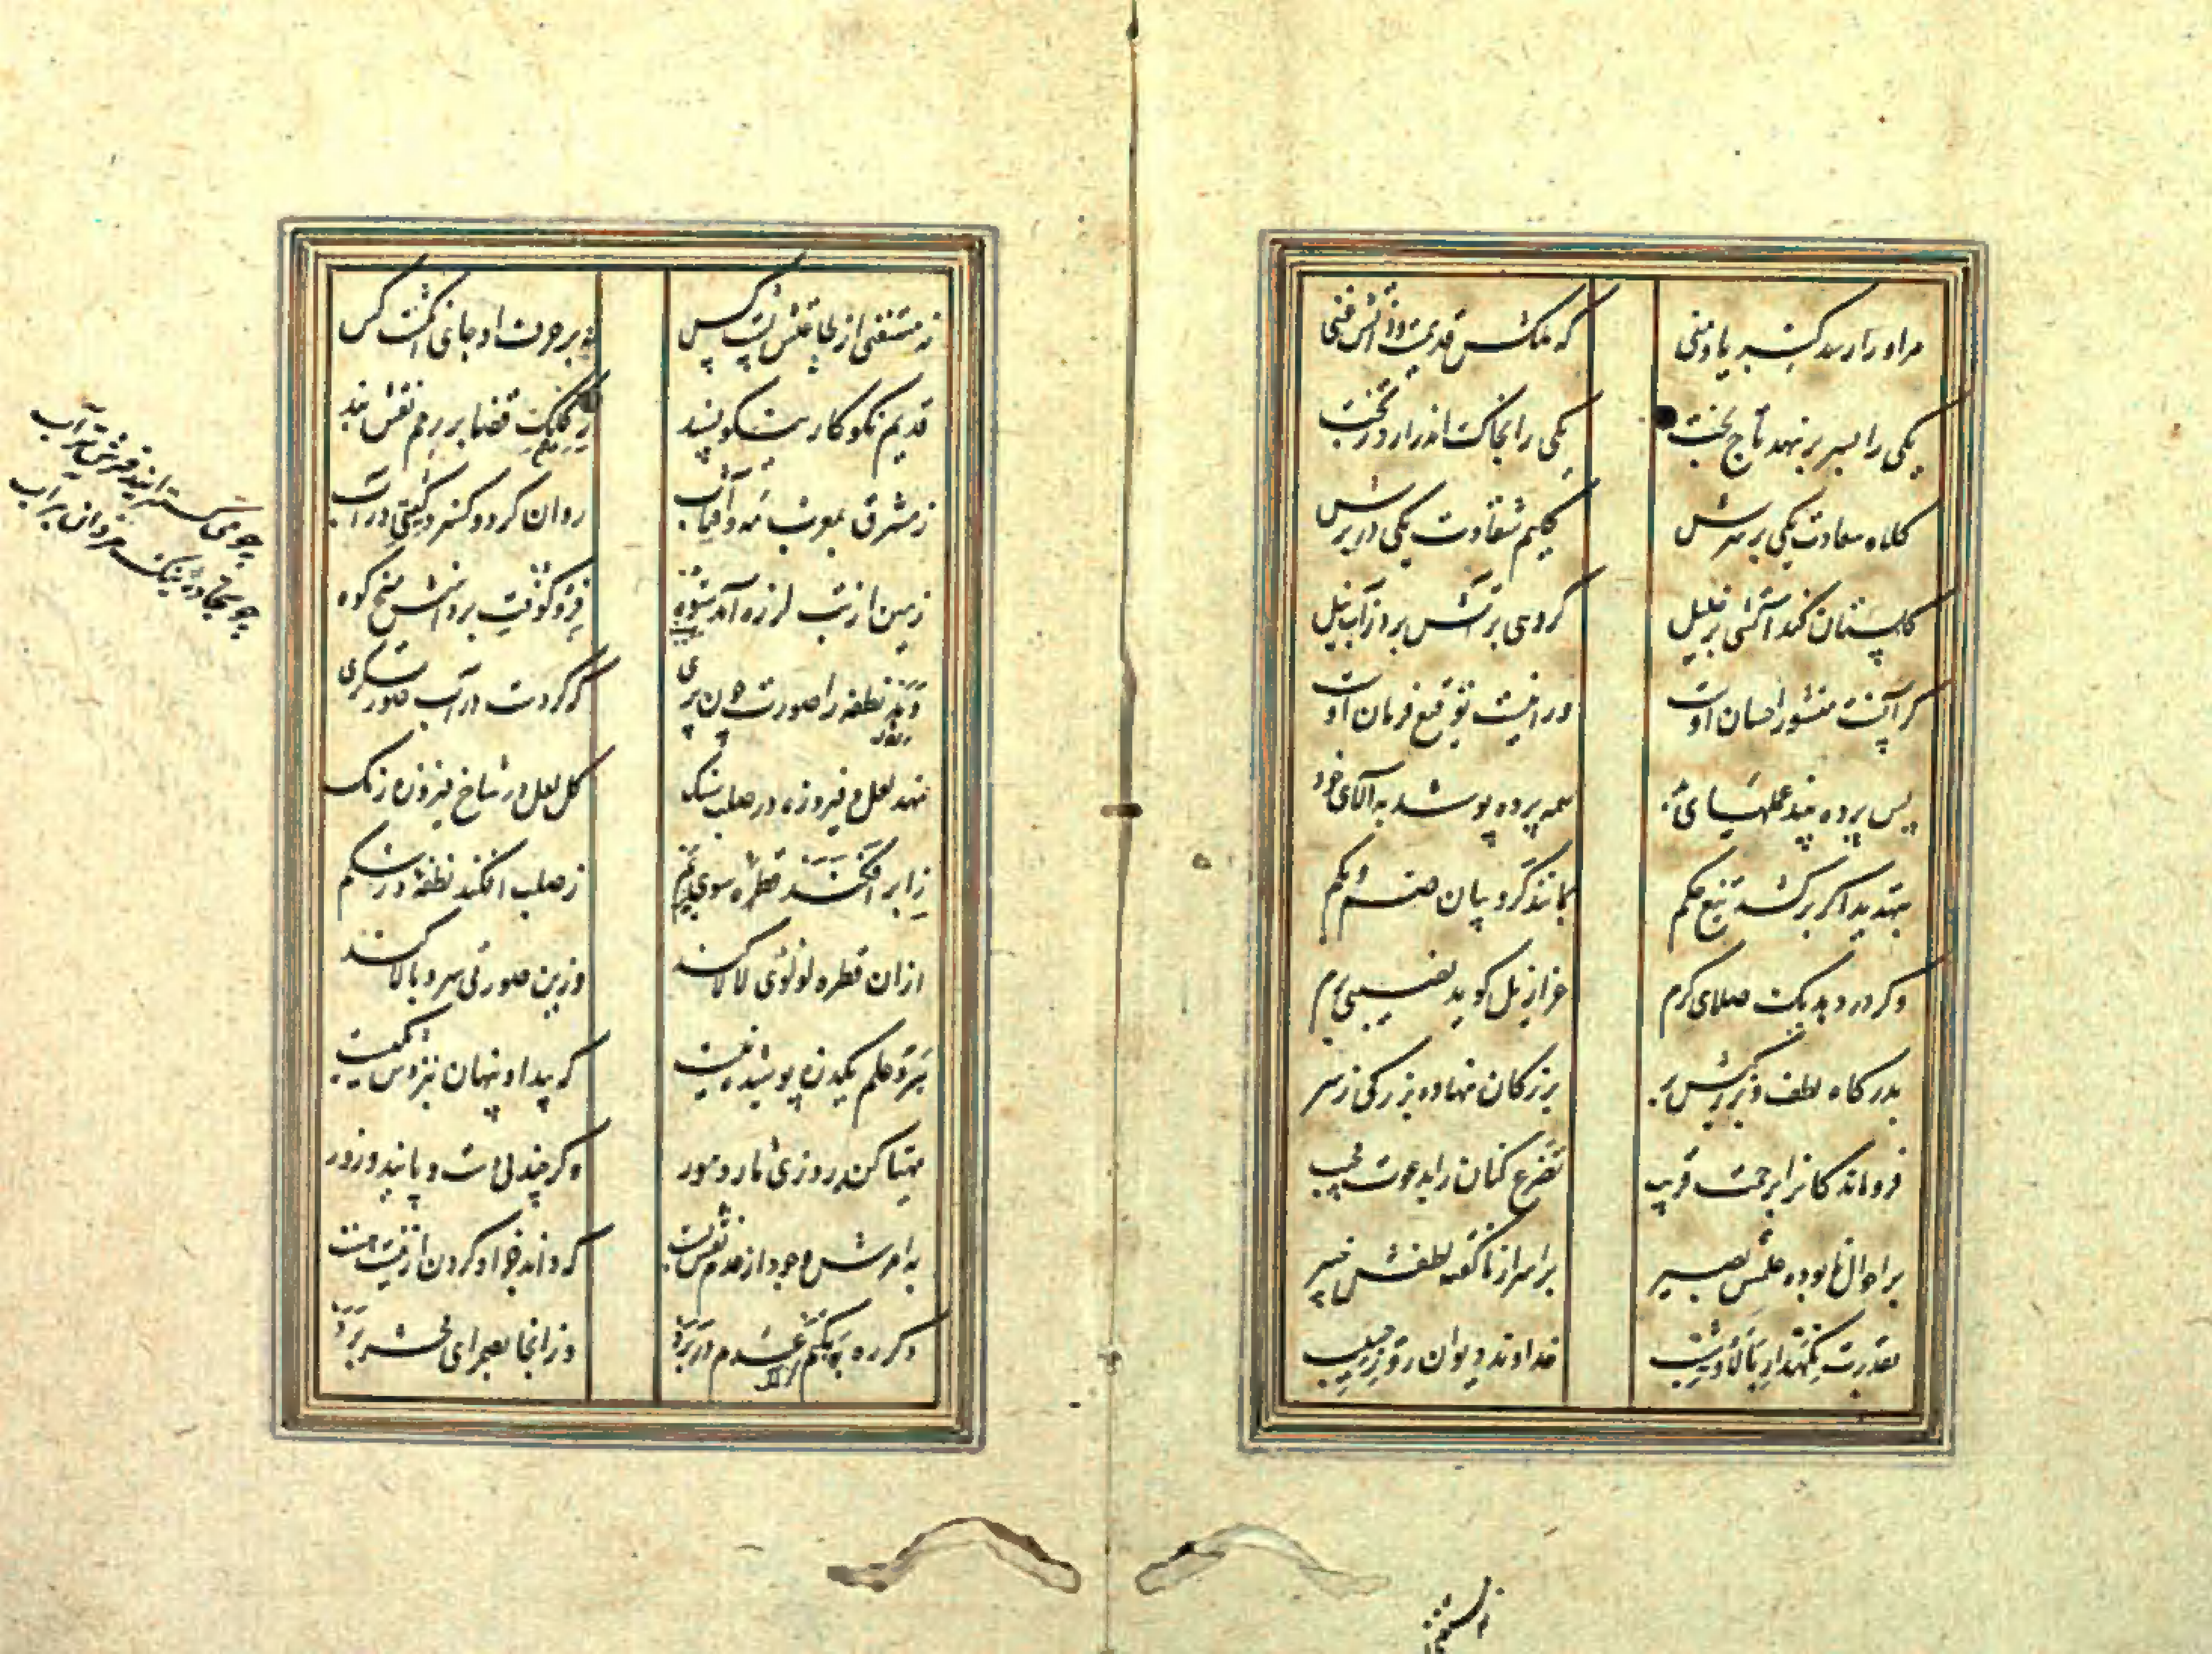 مراو را رسد کبریا و منی
که ملکش قدیمست و ذاتش غنی
یکی را بسر بر نهد تاج بخت
یکی را بخاک اندر آرد ز تخت
کلاه سعادت یکی بر سرش
گلیم شقاوت یکی در برش
گلستان کند آتشی بر خلیل
گروهی بر آتش برد ز آب نیل
گر آنست منشور احسان اوست
ور اینست توقیع فرمان اوست
پس پرده بیند عملهای بد
همه پرده پوشد به آلای خود
بتهدید اگر برکشد تیغ حکم
بمانند کروبیان صم و بکم
وگر در دهد یک صلای کرم
عزازیل گوید نصیبی برم
بدرگاه لطف و بزرگیش بر
بزرگان نهاده بزرگی ز سر
فروماندگانرا برحمت قریب
تضرع کنان را بدعوت مجیب
بر احوال نابوده علمش بصیر
بر اسرار ناگفته لطفش خبیر
بقدرت نگهدار بالا و شیب
خداوند دیوان روز حسیب
نه مستغنی از طاعتش پشت کس
نه بر حرف او جای انگشت کس
قدیم نکوکار نیکو پسند
ز کلک قضا در رحم نقش بند
ز مشرق بمغرب مه و آفتاب
روان کرد و گسترد گیتی در آب
زمین از تب لرزه آمد ستوه
فرو کوفت بر دامنش میخ کوه
دهد نطفه را صورت چون پری
که کردست در آب صورتگری
نهد لعل و فیروزه در صلب سنگ
گل لعل در شاخ فیروزه رنگ
ز ابر افکند قطره سوی یم
ز صلب افکند نطفه در شکم
از آن قطره لولوی لالا کند
وزین صورتی سرو بالا کند
برو علم یکذره پوشیده نیست
که پیدا و پنهان بنزدش یکیست
مهیا کن روزی مار و مور
وگر چند بی دست و پایند و زور
به امرش وجود از عدم نقش بست
که داند جز او کردن از نیست هست
دگر ره بکتم عدم در برد
وز آنجا بصحرای محشر برد
چو می گسترانید فرش تراب
چو سجاده نیک مردان بر آب
نه مستغنی